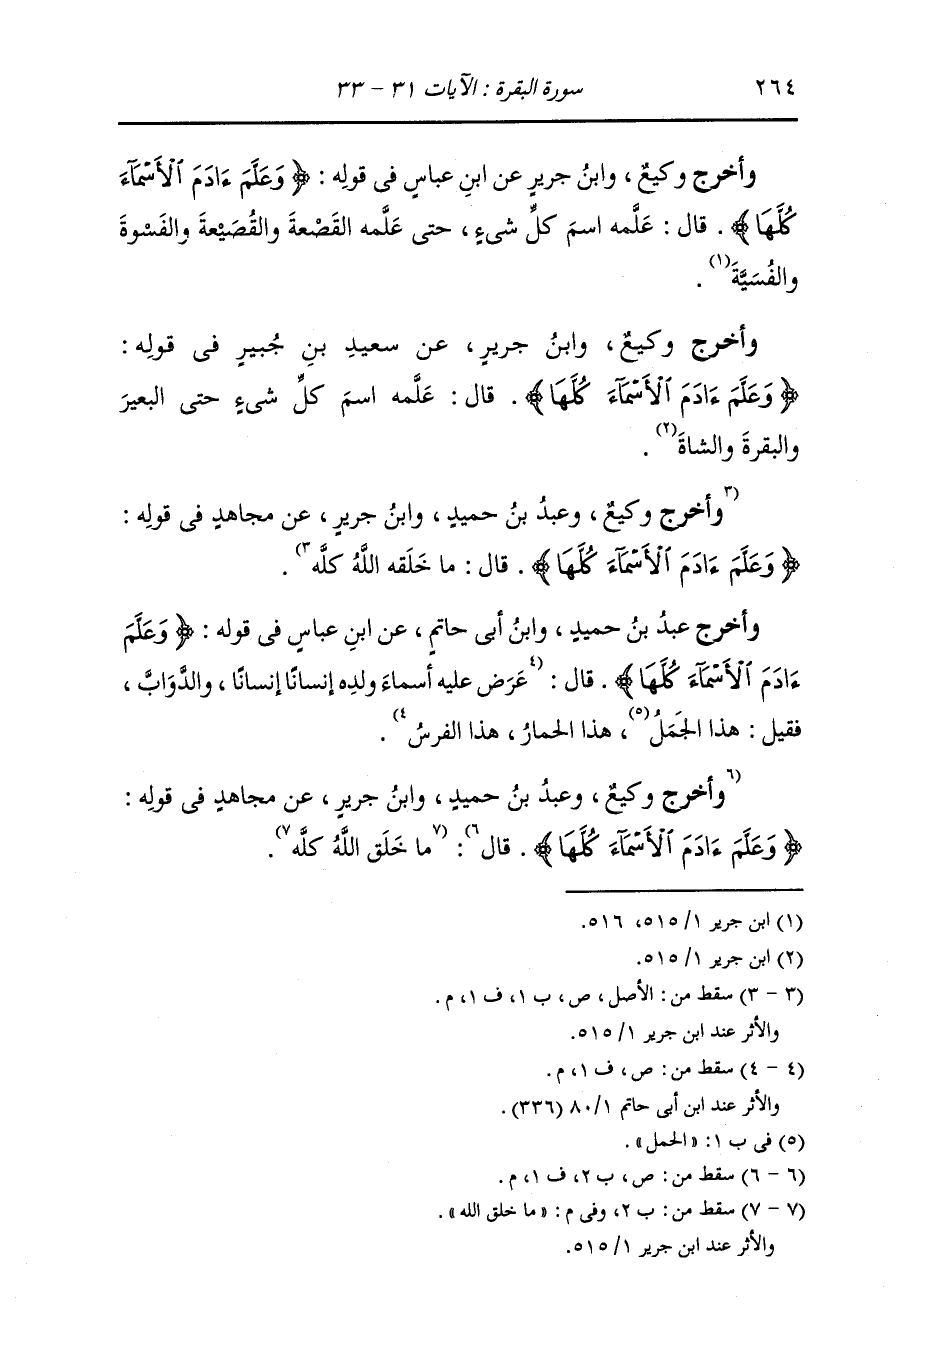 ٢٦٤ سورة البقرة : الآيات ٣١ - ٣٣
وأخرج وكيعٌ ، وابنُ جريرٍ عن ابنِ عباسٍ فى قولِه : ﴿ وَعَلَّمَ ءَادَمَ ٱلْأَسْمَآءَ
كُلَّهَا ﴾ . قال : عَلَّمه اسمَ كلِّ شىءٍ ، حتى عَلَّمه القَصْعةَ والقُصَيْعةَ والفَسْوةَ
والفُسَيَّةَ(١) .
وأخرج وكيعٌ ، وابنُ جريرٍ ، عن سعيدِ بنِ جُبيرٍ فى قولِه :
﴿ وَعَلَّمَ ءَادَمَ ٱلْأَسْمَآءَ كُلَّهَا ﴾ . قال : عَلَّمه اسمَ كلِّ شىءٍ حتى البعيرَ
والبقرةَ والشاةَ(٢) .
(٣وأخرج وكيعٌ ، وعبدُ بنُ حميدٍ ، وابنُ جريرٍ ، عن مجاهدٍ فى قولِه :
﴿ وَعَلَّمَ ءَادَمَ ٱلْأَسْمَآءَ كُلَّهَا ﴾ . قال : ما خَلَقه اللَّهُ كلَّه٣) .
وأخرج عبدُ بنُ حميدٍ ، وابنُ أبى حاتمٍ ، عن ابنِ عباسٍ فى قوله : ﴿ وَعَلَّمَ
ءَادَمَ ٱلْأَسْمَآءَ كُلَّهَا ﴾ . قال : (٤عَرَض عليه أسماءَ ولدِه إنسانًا إنسانًا ، والدَّوَابَّ ،
فقيل : هذا الجَمَلُ(٥) ، هذا الحمارُ ، هذا الفرسُ٤) .
(٦وأخرج وكيعٌ ، وعبدُ بنُ حميدٍ ، وابنُ جريرٍ ، عن مجاهدٍ فى قولِه :
﴿ وَعَلَّمَ ءَادَمَ ٱلْأَسْمَآءَ كُلَّهَا ﴾ . قال٦) : (٧ما خَلَق اللَّهُ كلَّه٧) .
(١) ابن جرير ١/ ٥١٥، ٥١٦.
(٢) ابن جرير ١/ ٥١٥.
(٣ - ٣) سقط من : الأصل ، ص ، ب ١، ف ١، م .
والأثر عند ابن جرير ١/ ٥١٥.
(٤ - ٤) سقط من : ص ، ف ١، م .
والأثر عند ابن أبى حاتم ٨٠/١ (٣٣٦) .
(٥) فى ب ١: «الحمل» .
(٦ - ٦) سقط من : ص ، ب ٢، ف ١، م .
(٧ - ٧) سقط من : ب ٢، وفى م : «ما خلق الله» .
والأثر عند ابن جرير ١/ ٥١٥.